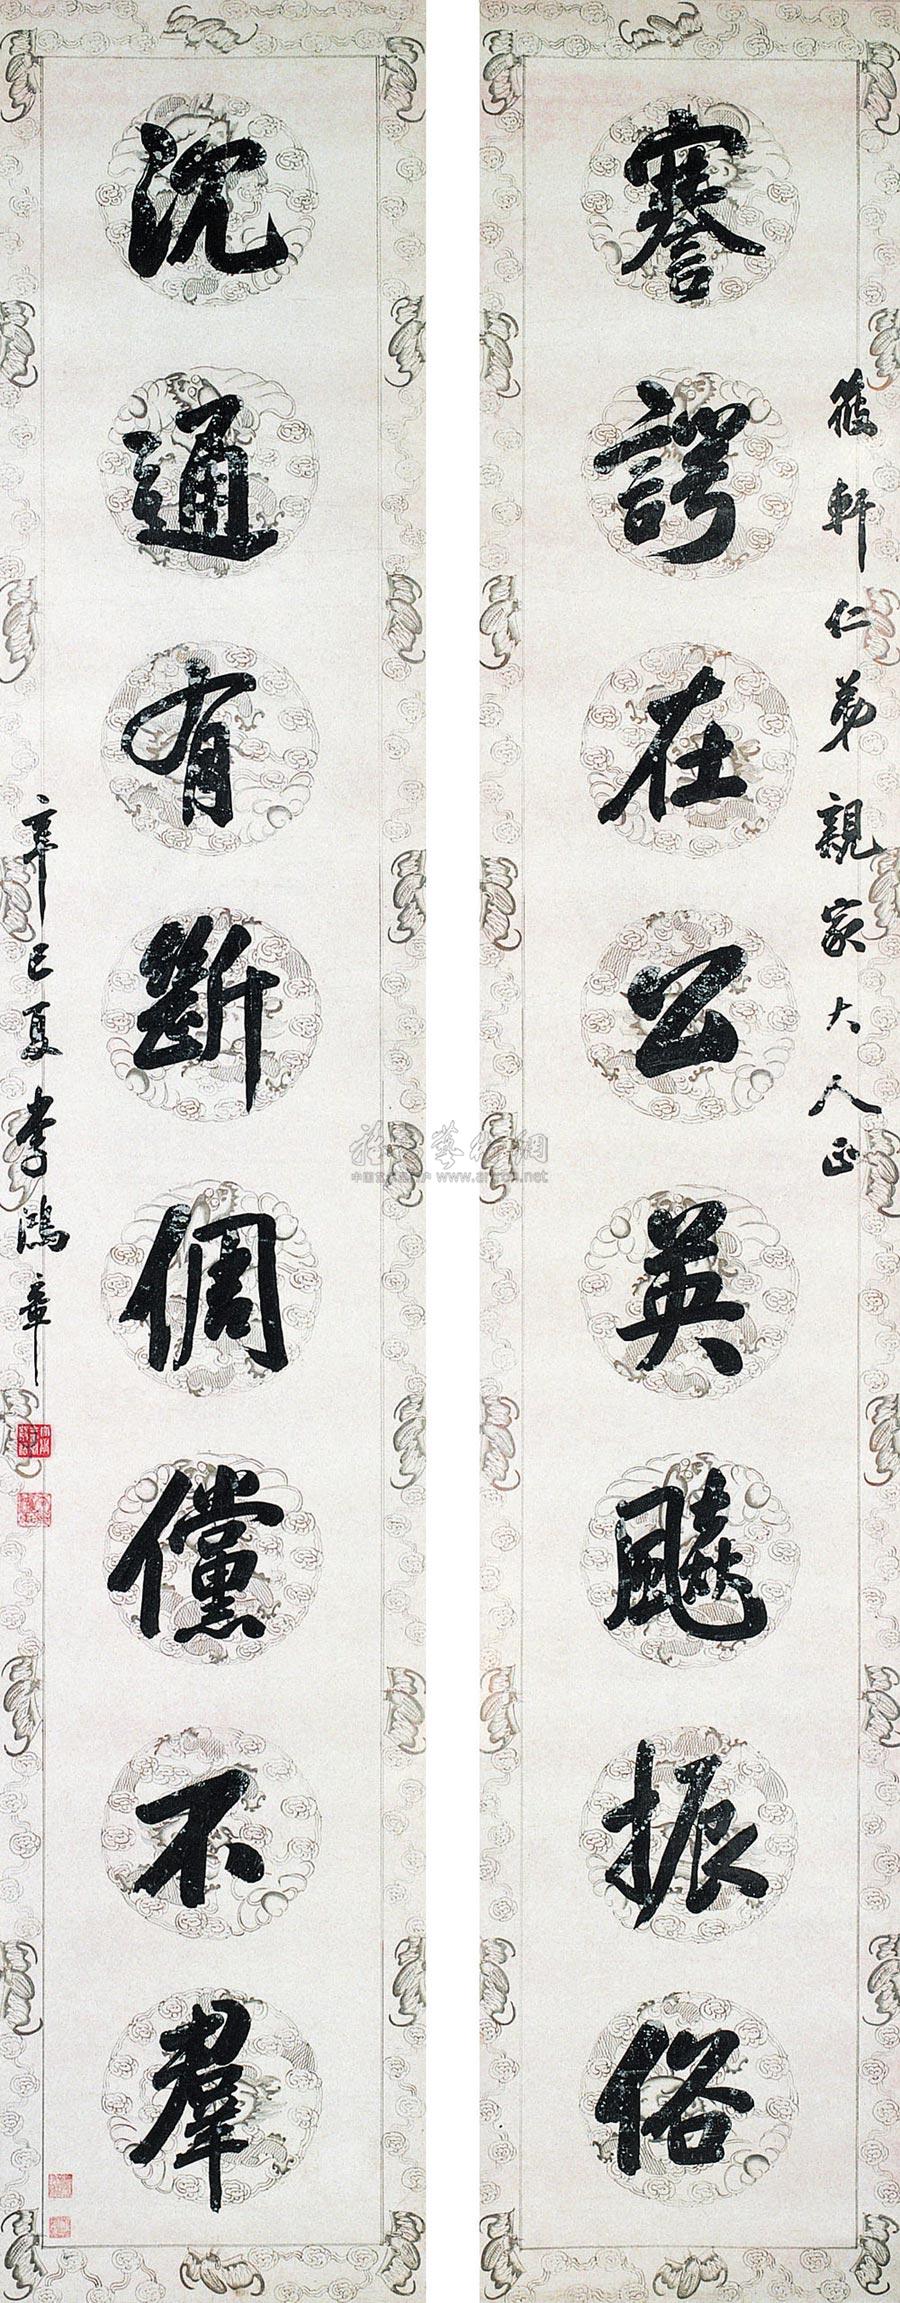 謇諤在公英飇振俗
筱軒仁弟親家大人正
沉通有斷倜儻不羣
辛巳夏李鴻章
www.artron.net